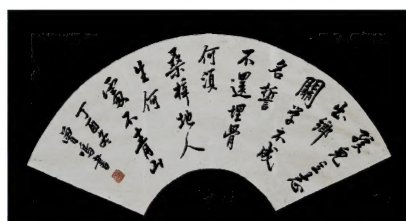 孩兒立志
出鄉
關學不成
名誓
不還埋骨
何須
桑梓地人
生何
處不青山
丁酉冬
書